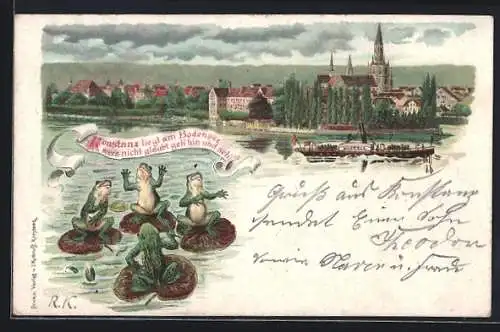 Konstanz liegt am Bodensee
wers nicht glaubt geh hin und seh!
Gruß aus Konstanz
sendet Euer Sohn
Theodor
sowie Marie u. Frau
R.K.